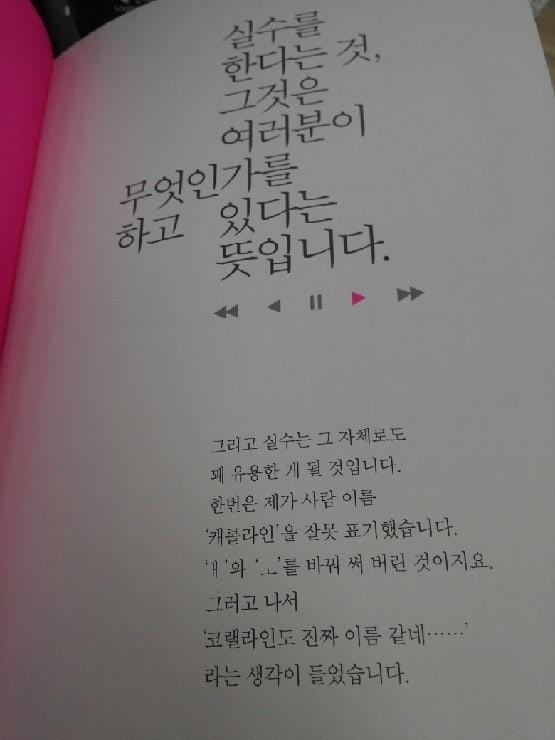 실수를
한다는 것,
그것은
여러분이
무엇인가를
하고 있다는
뜻입니다.
그리고 실수는 그 자체로도
꽤 유용한 게 될 것입니다.
한번은 제가 사람 이름
'캐롤라인'을 잘못 표기했습니다.
'ㅐ'와 'ㅗ'를 바꿔 써 버린 것이지요.
그러고 나서
'코랠라인도 진짜 이름 같네……'
라는 생각이 들었습니다.